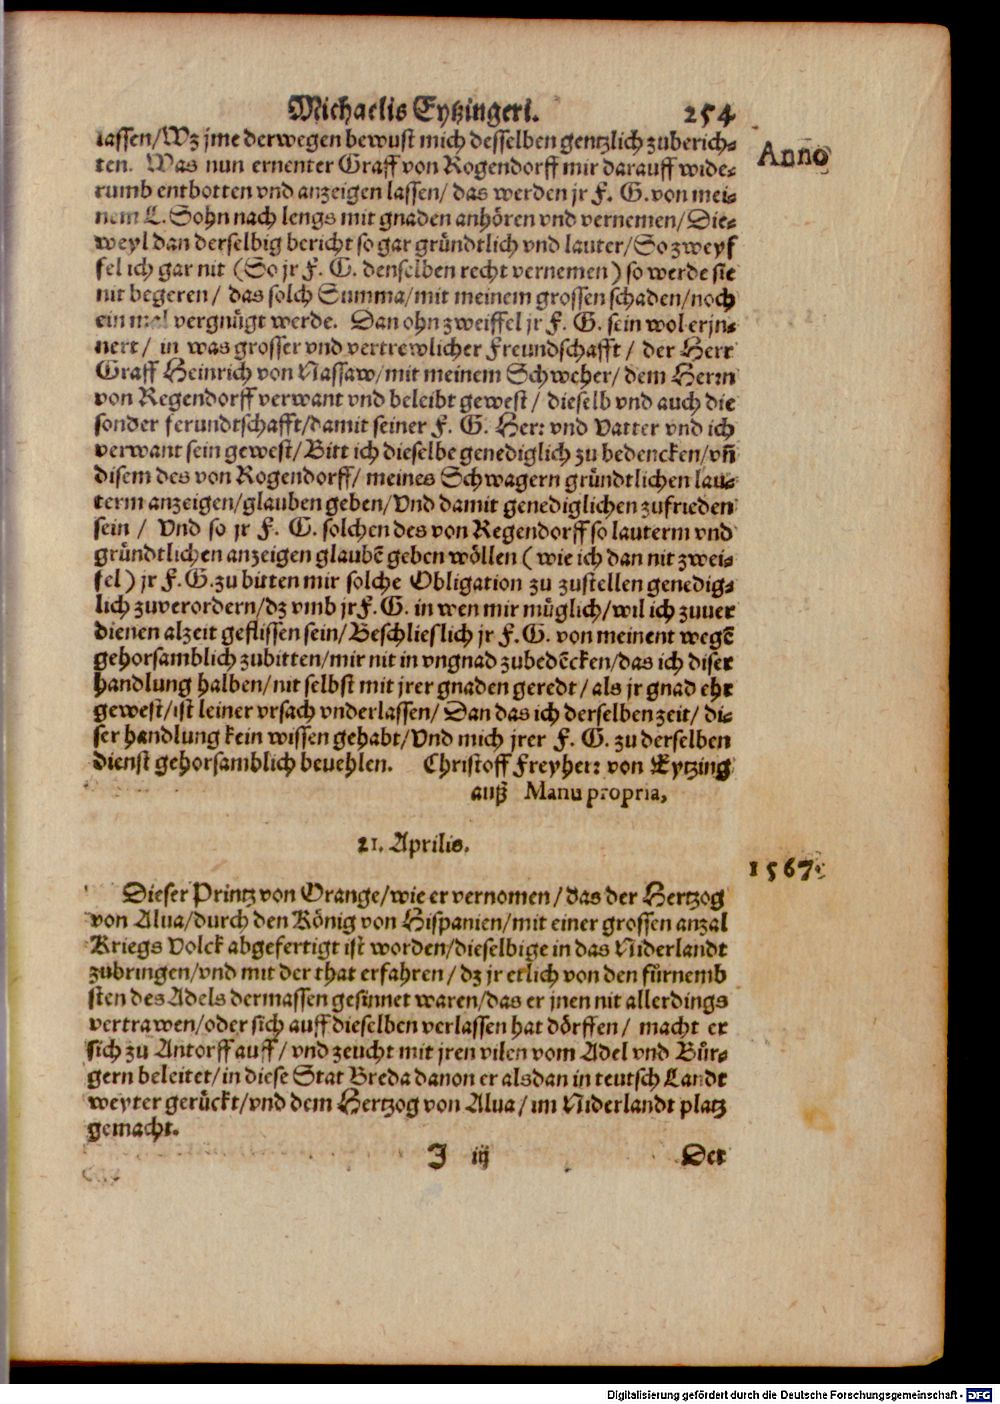 Michaelis Eytzingeri. 254
Anno
lassen/Wz jme derwegen bewust mich desselben gentzlich zuberich⸗
ten. Was nun ernenter Graff von Rogendorff mir darauff wide⸗
rumb entbotten vnd anzeigen lassen/ das werden jr F. G. von mei⸗
nem L. Sohn nach lengs mit gnaden anhören vnd vernemen/ Die⸗
weyl dan derselbig bericht so gar gründtlich vnd lauter/ So zweyf
fel ich gar nit (So jr F. G. denselben recht vernemen) so werde sie
nit begeren/ das solch Summa/ mit meinem grossen schaden/ noch
ein mal vergnügt werde. Dan ohn zweiffel jr F. G. sein wol erjn⸗
nert/ in was grosser vnd vertrewlicher Freundschafft/ der Herr
Graff Heinrich von Nassaw/ mit meinem Schweher/ dem Herrn
von Regendorff verwant vnd beleibt gewest/ dieselb vnd auch die
sonder ferundtschafft/ damit seiner F. G. Herr vnd Vatter vnd ich
verwant sein gewest/ Bitt ich dieselbe genediglich zu bedencken/ vn̄
disem des von Rogendorff/ meines Schwagern gründtlichen lau⸗
term anzeigen/ glauben geben/ Vnd damit genediglichen zufrieden
sein/ Vnd so jr F. G. solchen des von Regendorff so lauterm vnd
gründtlichen anzeigen glaubē geben wöllen (wie ich dan nit zwei⸗
fel) jr F. G. zu bitten mir solche Obligation zu zustellen genedig⸗
lich zuverordern/ dz vmb jr F. G. in wen mir müglich/ wil ich zuuer
dienen alzeit geflissen sein/ Beschlieslich jr F. G. von meinent wegē
gehorsamblich zubitten/ mir nit in vngnad zubedēcken/ das ich diser
handlung halben/ nit selbst mit jrer gnaden geredt/ als jr gnad ehr
gewest/ ist leiner vrsach vnderlassen/ Dan das ich derselben zeit/ di⸗
ser handlung kein wissen gehabt/ Vnd mich jrer F. G. zu derselben
dienst gehorsamblich beuehlen. Christoff Freyherr von Eytzing
auß Manu propria,
21. Aprilis.
1567.
Dieser Printz von Orange/ wie er vernomen/ das der Hertzog
von Alua/ durch den König von Hispanien/ mit einer grossen anzal
Kriegs Volck abgefertigt ist worden/ dieselbige in das Niderlandt
zubringen/ vnd mit der that erfahren/ dz jr etlich von den fürnemb
sten des Adels dermassen gesinnet waren/ das er jnen nit allerdings
vertrawen/ oder sich auff dieselben verlassen hat dörffen/ macht er
sich zu Antorff auff/ vnd zeucht mit jren vilen vom Adel vnd Bür⸗
gern beleitet/ in diese Stat Breda danon er alsdan in teutsch Landt
weyter gerückt/ vnd dem Hertzog von Alua/ im Niderlandt platz
gemacht.
I iij Der
Digitalisierung gefördert durch die Deutsche Forschungsgemeinschaft - DFG